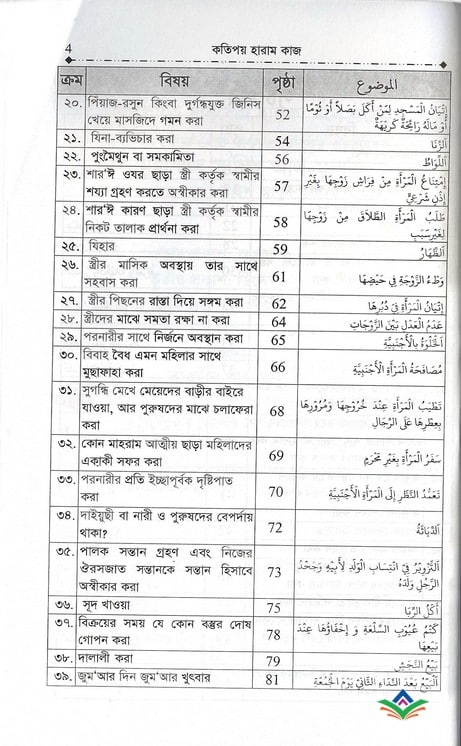 4 কতিপয় হারাম কাজ
ক্রম বিষয় পৃষ্ঠা الموضوع
২০. পিয়াজ-রসুন কিংবা দুর্গন্ধযুক্ত জিনিস খেয়ে মাসজিদে গমন করা 52 إِتْيَانُ الْمَسْجِدِ لِمَنْ أَكَلَ بَصَلاً أَوْ ثُوْمًا أَوْ مَالَهُ رَائِحَةٌ كَرِيْهَةٌ
২১. যিনা-ব্যভিচার করা 54 اَلزِّنَا
২২. পুংমৈথুন বা সমকামিতা 56 اَللِّوَاطُ
২৩. শার'ঈ ওযর ছাড়া স্ত্রী কর্তৃক স্বামীর শয্যা গ্রহণ করতে অস্বীকার করা 57 إِمْتِنَاعُ الْمَرْأَةِ مِنْ فِرَاشِ زَوْجِهَا بِغَيْرِ إِذْنٍ شَرْعِيٍّ
২৪. শার'ঈ কারণ ছাড়া স্ত্রী কর্তৃক স্বামীর নিকট তালাক প্রার্থনা করা 58 طَلَبُ الْمَرْأَةِ الطَّلَاقَ مِنْ زَوْجِهَا لِغَيْرِ سَبَبٍ
২৫. যিহার 59 اَلظِّهَارُ
২৬. স্ত্রীর মাসিক অবস্থায় তার সাথে সহবাস করা 61 وَطْءُ الزَّوْجَةِ فِي حَيْضِهَا
২৭. স্ত্রীর পিছনের রাস্তা দিয়ে সঙ্গম করা 62 إِتْيَانُ الْمَرْأَةِ فِي دُبُرِهَا
২৮. স্ত্রীদের মাঝে সমতা রক্ষা না করা 64 عَدَمُ الْعَدْلِ بَيْنَ الزَّوْجَاتِ
২৯. পরনারীর সাথে নির্জনে অবস্থান করা 65 اَلْخَلْوَةُ بِالْأَجْنَبِيَّةِ
৩০. বিবাহ বৈধ এমন মহিলার সাথে মুছাফাহা করা 66 مُصَافَحَةُ الْمَرْأَةِ الْأَجْنَبِيَّةِ
৩১. সুগন্ধি মেখে মেয়েদের বাড়ীর বাইরে যাওয়া, আর পুরুষদের মাঝে চলাফেরা করা 68 تَطْيِبُ الْمَرْأَةِ عِنْدَ خُرُوْجِهَا وَمُرُوْرُهَا بِعِطْرِهَا عَلَى الرِّجَالِ
৩২. কোন মাহরাম আত্মীয় ছাড়া মহিলাদের একাকী সফর করা 69 سَفَرُ الْمَرْأَةِ بِغَيْرِ مَحْرَمٍ
৩৩. পরনারীর প্রতি ইচ্ছাপূর্বক দৃষ্টিপাত করা 70 تَعَمُّدُ النَّظَرِ إِلَى الْمَرْأَةِ الْأَجْنَبِيَّةِ
৩৪. দাইয়ুছী বা নারী ও পুরুষদের বেপর্দায় থাকা? 72 اَلدِّيَاثَةُ
৩৫. পালক সন্তান গ্রহণ এবং নিজের ঔরসজাত সন্তানকে সন্তান হিসাবে অস্বীকার করা 73 اَلتَّزْوِيْرُ فِيْ انْتِسَابِ الْوَلَدِ لِأَبِيْهِ وَجَحْدِ الرَّجُلِ وَلَدَهُ
৩৬. সূদ খাওয়া 75 أَكْلُ الرِّبَا
৩৭. বিক্রয়ের সময় যে কোন বস্তুর দোষ গোপন করা 78 كَتْمُ عُيُوْبِ السِّلْعَةِ وَ إِخْفَاؤُهَا عِنْدَ بَيْعِهَا
৩৮. দালালী করা 79 بَيْعُ النَّجَشِ
৩৯. জুম'আর দিন জুম'আর খুৎবার 81 اَلْبَيْعُ بَعْدَ النِّدَاءِ الثَّانِيْ يَوْمَ الْجُمُعَةِ